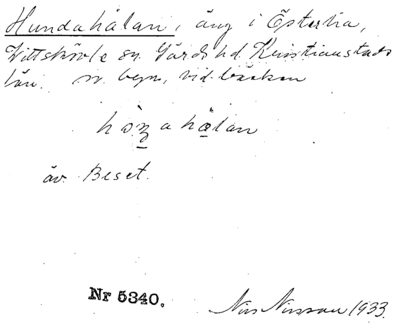 Hundahålan, äng i Österlia,
Vittskövle sn. Gärds hd. Kristianstads
län. sv. byn, vid bäcken
äv. Beset.
Nr 5340.
Nils Nilsson 1933.